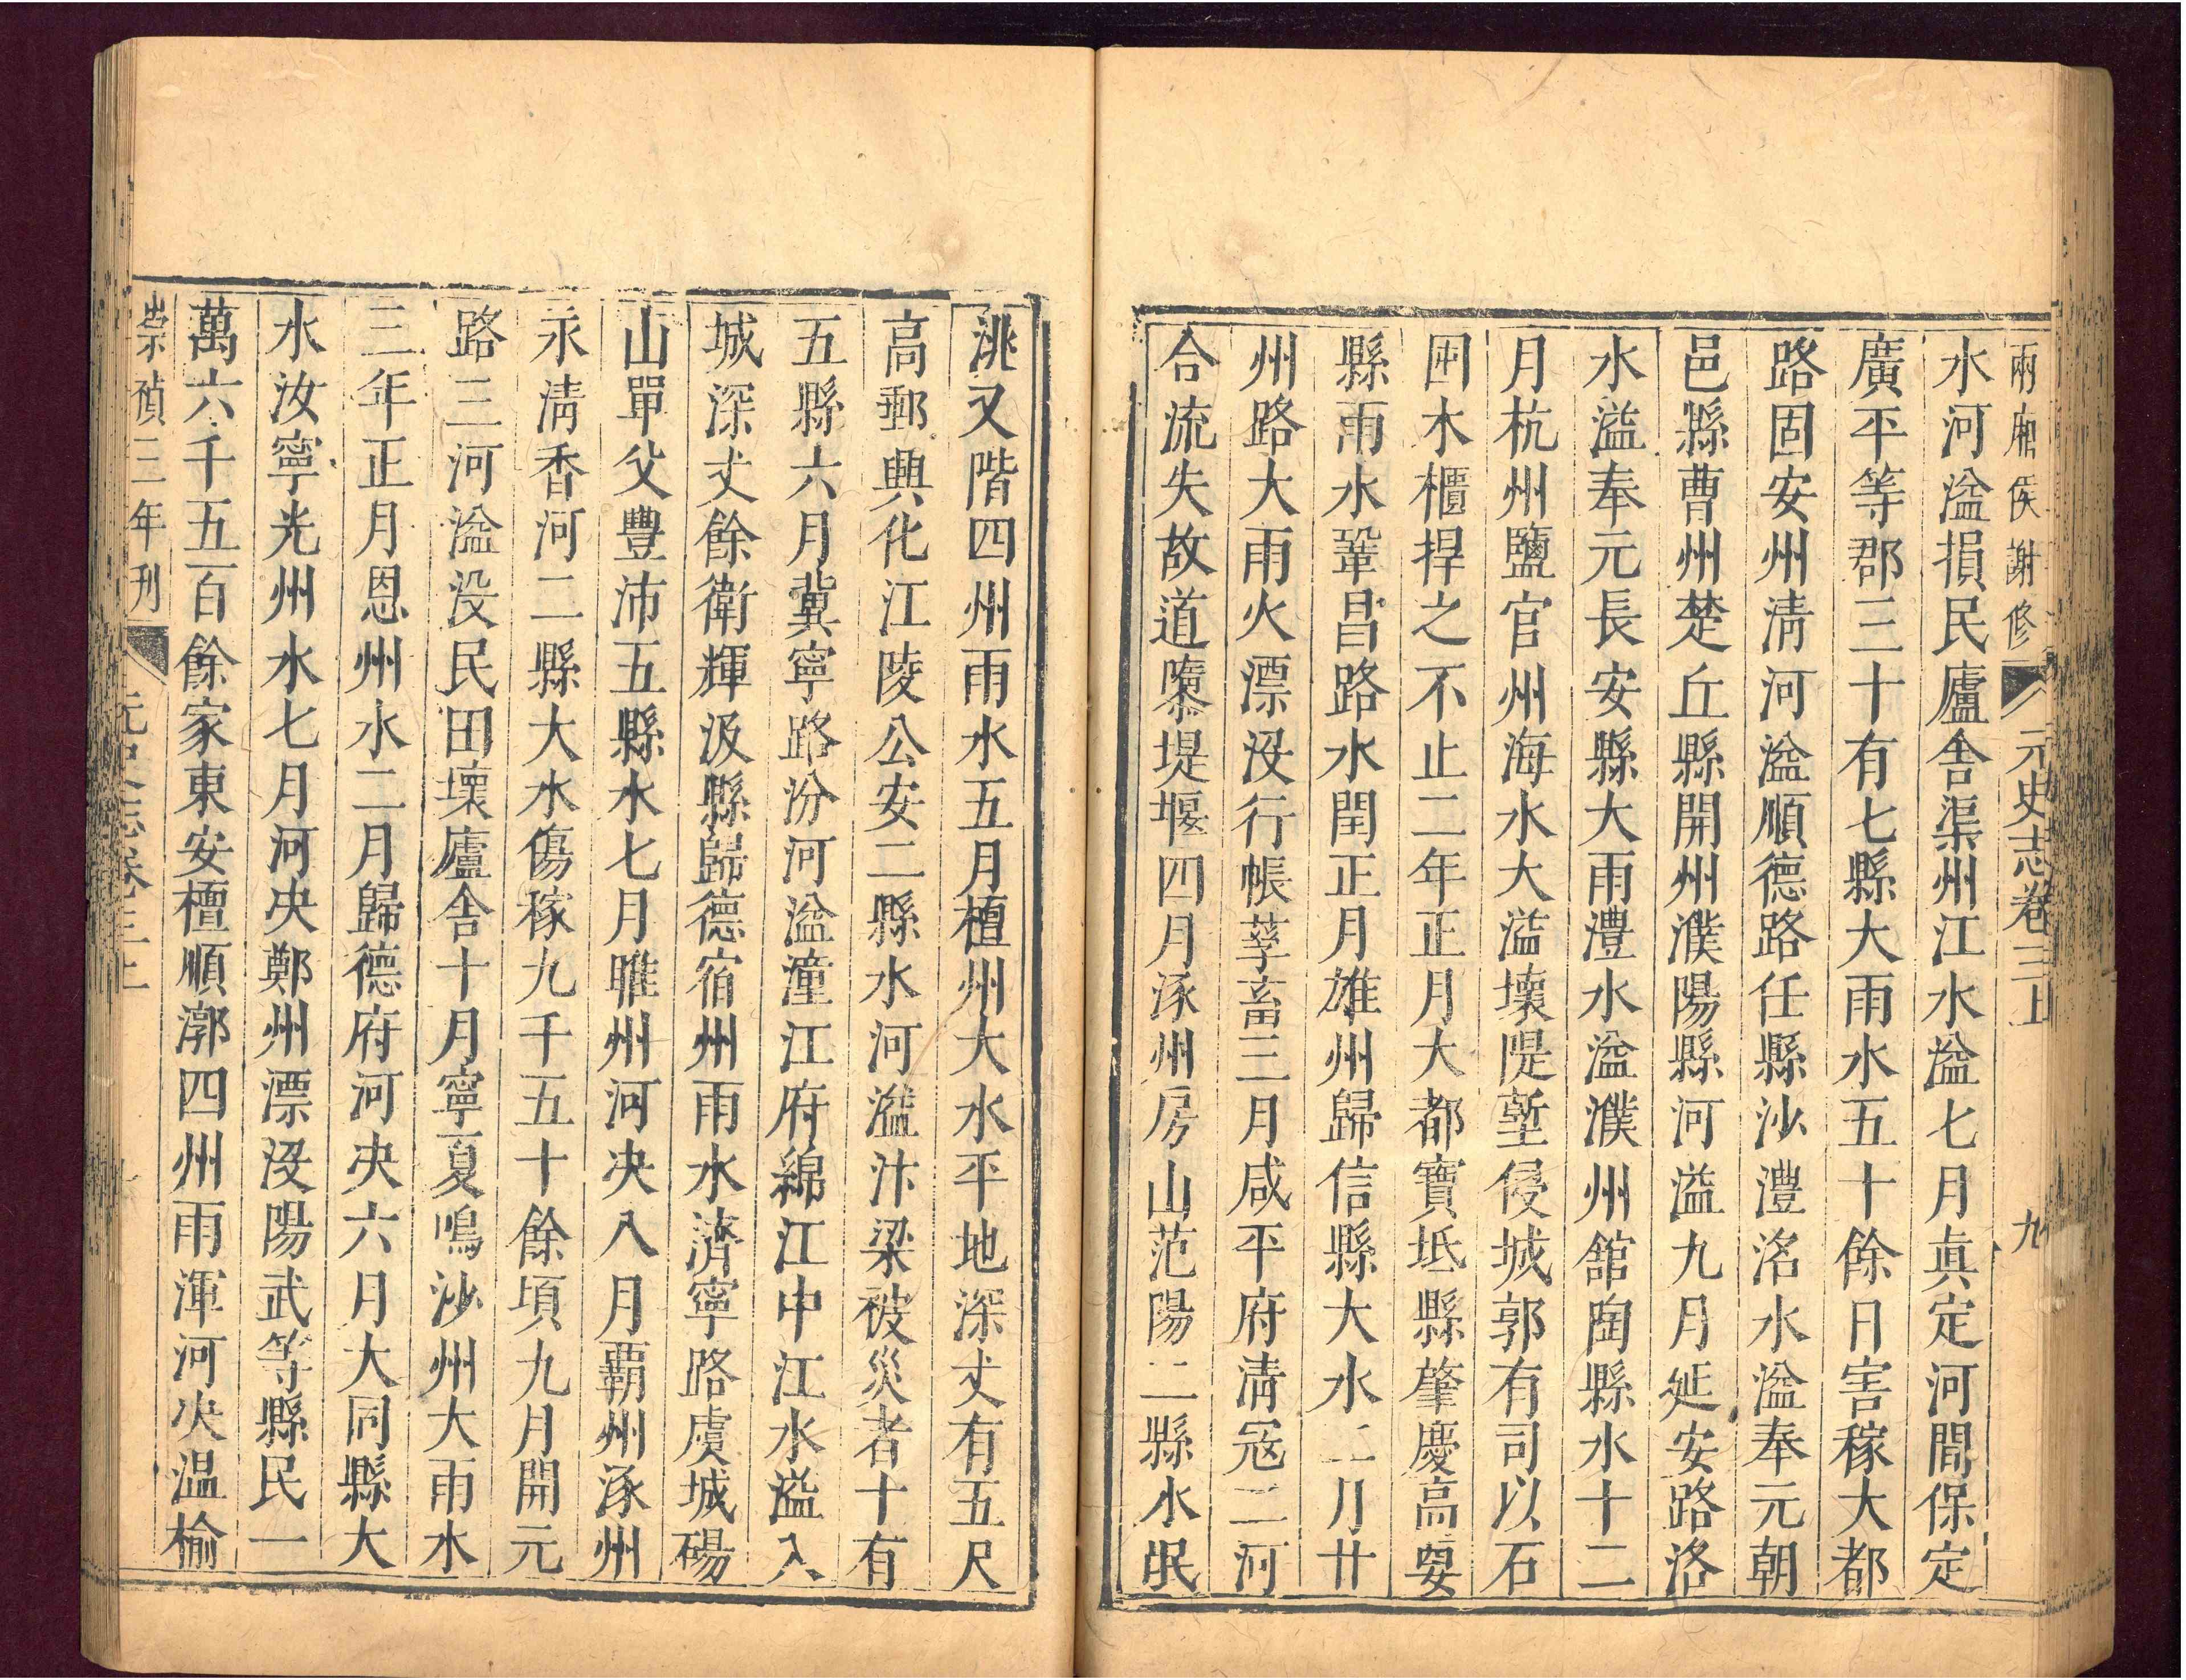 兩廂侯謝修 元史志卷三上 九
水河溢損民廬舍渠州江水溢七月真定河間保定
廣平等郡三十有七縣大雨水五十餘日害稼大都
路固安州清河溢順德路任縣沙澧洺水溢奉元朝
邑縣曹州楚丘縣開州濮陽縣河溢九月延安路洛
水溢奉元長安縣大雨澧水溢濮州館陶縣水十二
月杭州鹽官州海水大溢壞隄塹侵城郭有司以石
囤木櫃捍之不止二年正月大都寶坻縣肇慶高要
縣雨水鞏昌路水閏正月雄州歸信縣大水二月甘
州路大雨水漂沒行帳孳畜三月咸平府清寇二河
合流失故道隳堤堰四月涿州房山范陽二縣水岷
洮文階四州雨水五月檀州大水平地深丈有五尺
高郵興化江陵公安二縣水河溢汴梁被災者十有
五縣六月冀寧路汾河溢潼江府綿江中江水溢入
城深丈餘衛輝汲縣歸德宿州雨水濟寧路虞城碭
山單父豐沛五縣水七月睢州河決八月霸州涿州
永清香河二縣大水傷稼九千五十餘頃九月開元
路三河溢沒民田壞廬舍十月寧夏鳴沙州大雨水
三年正月恩州水二月歸德府河決六月大同縣大
水汝寧光州水七月河決鄭州漂沒陽武等縣民一
萬六千五百餘家東安檀順漷四州雨渾河决溫榆
崇禎三年刊 元史志卷三上